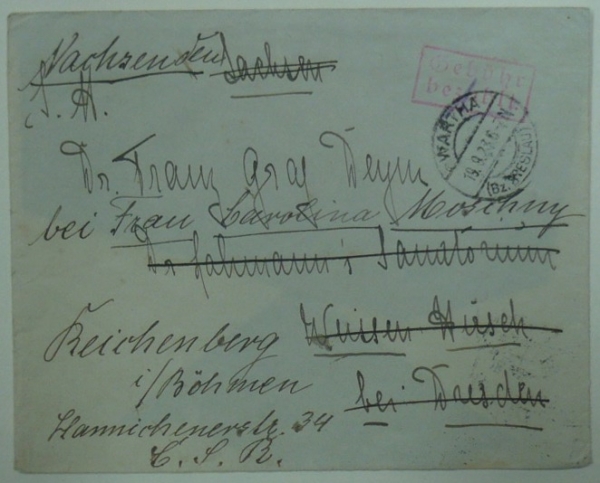 Nachsenden Sachsen
S. H.
Gebühr
bezahlt
WARTHA
19.9.23.6-7N
(Bz. BRESLAU)
Dr. Franz Graf Deym
bei Frau Carolina Moschny
Dr Lahmann's Sanatorium
Weisser Hirsch
bei Dresden
Reichenberg
i/Böhmen
Hannichenerstr. 34
C. S. R.